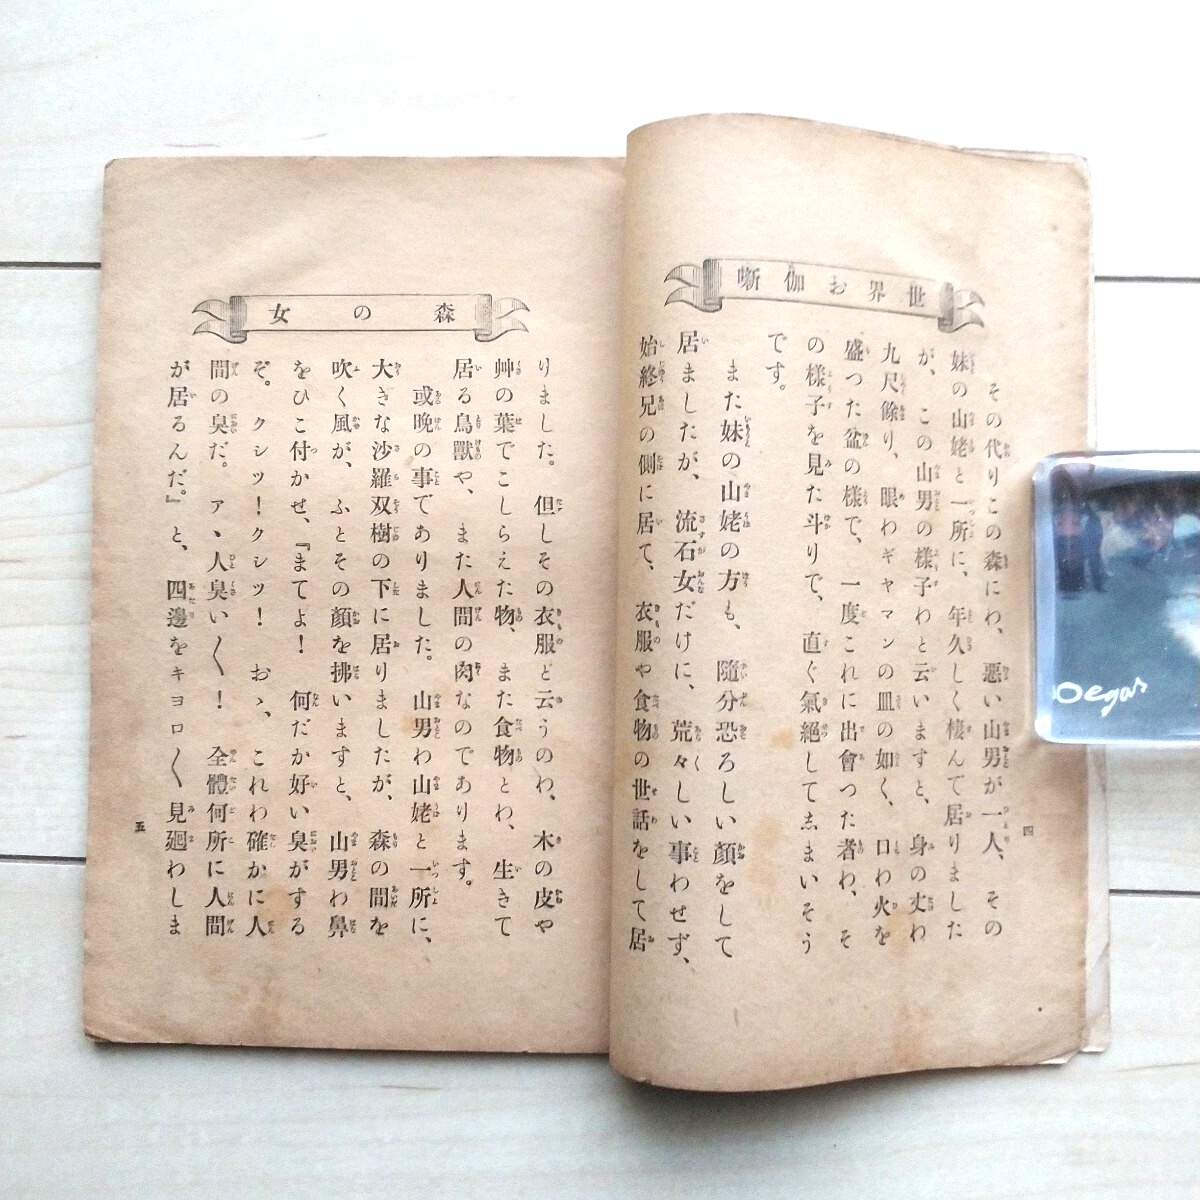 世界お伽噺
その代りこの森にわ、惡い山男が一人、その
妹の山姥と一所に、年久しく棲んで居りました
が、この山男の樣子わと云いますと、身の丈わ
九尺餘り、眼わギヤマンの皿の如く、口わ火を
盛つた盆の樣で、一度これに出會つた者わ、そ
の樣子を見た斗りで、直ぐ氣絕して志まいそう
です。
また妹の山姥の方も、隨分恐ろしい顏をして
居ましたが、流石女だけに、荒々しい事わせず、
始終兄の側に居て、衣服や食物の世話をして居
四
森の女
りました。但しその衣服と云うのわ、木の皮や
艸の葉でこしらえた物、また食物とわ、生きて
居る鳥獸や、また人間の肉なのであります。
或晩の事でありました。山男わ山姥と一所に、
大きな沙羅双樹の下に居りましたが、森の間を
吹く風が、ふとその顏を拂いますと、山男わ鼻
をひこ付かせ、『まてよ！何だか好い臭がする
ぞ。クシツ！クシツ！おゝ、これわ確かに人
間の臭だ。アヽ人臭い〱！全體何所に人間
が居るんだ。』と、四邊をキヨロ〱見廻わしま
五
oegar